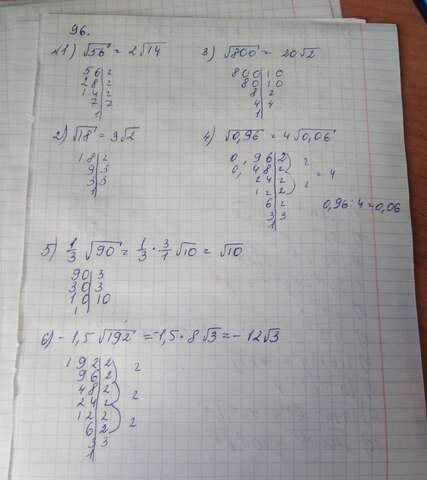 96.
1) √56 = 2√14
56|2
28|2
14|2
7|7
1|
2) √18 = 3√2
18|2
9|3
3|3
1|
3) √800 = 20√2
800|10
80|10
8|2
4|4
1|
4) √0,96 = 4√0,06
0,96|2
0,48|2
24|2
12|2
6|2
3|3
1|
2
2
= 4
0,96:4=0,06
5) 1/3 √90 = 1/3 · 3/1 √10 = √10
90|3
30|3
10|10
1|
6) -1,5√192 = -1,5·8√3 = -12√3
192|2
96|2
48|2
24|2
12|2
6|2
3|3
1|
2
2
2